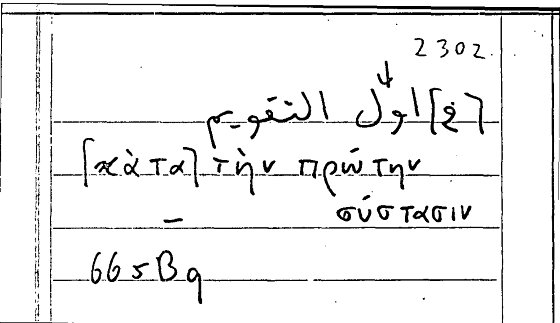 2302.
↓
[في] اول التقويم
[κὰτα] τὴν πρώτην
σύστασιν
–
665B9